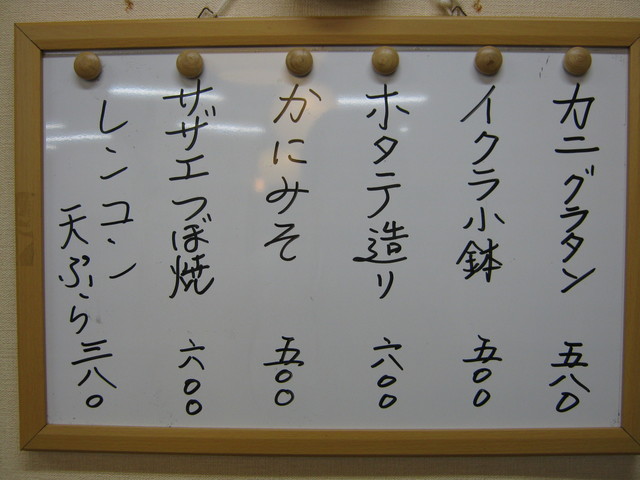 カニグラタン 五八〇
イクラ小鉢 五〇〇
ホタテ造り 六〇〇
かにみそ 五〇〇
サザエつぼ焼 六〇〇
レンコン
天ぷら 三八〇